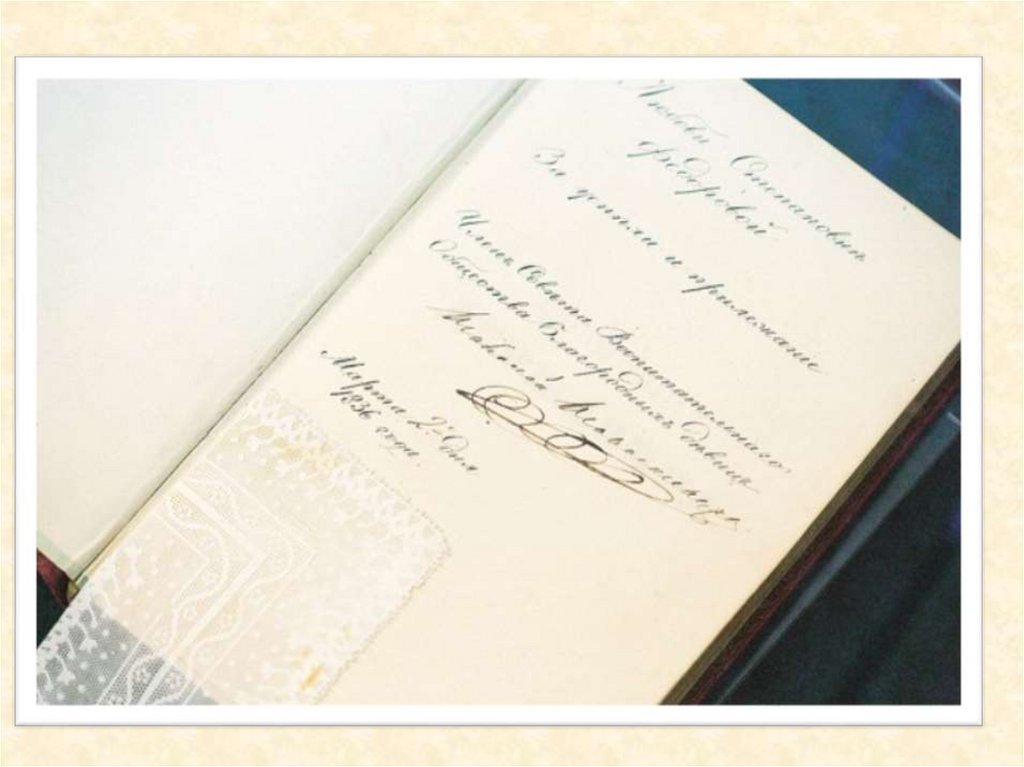 Любови Степановнѣ
Ѳедоровой
За успѣхи и прилежаніе
Членъ Совѣта Воспитательнаго
Общества благородныхъ дѣвицъ
Марта 2. Дня
1836 года.